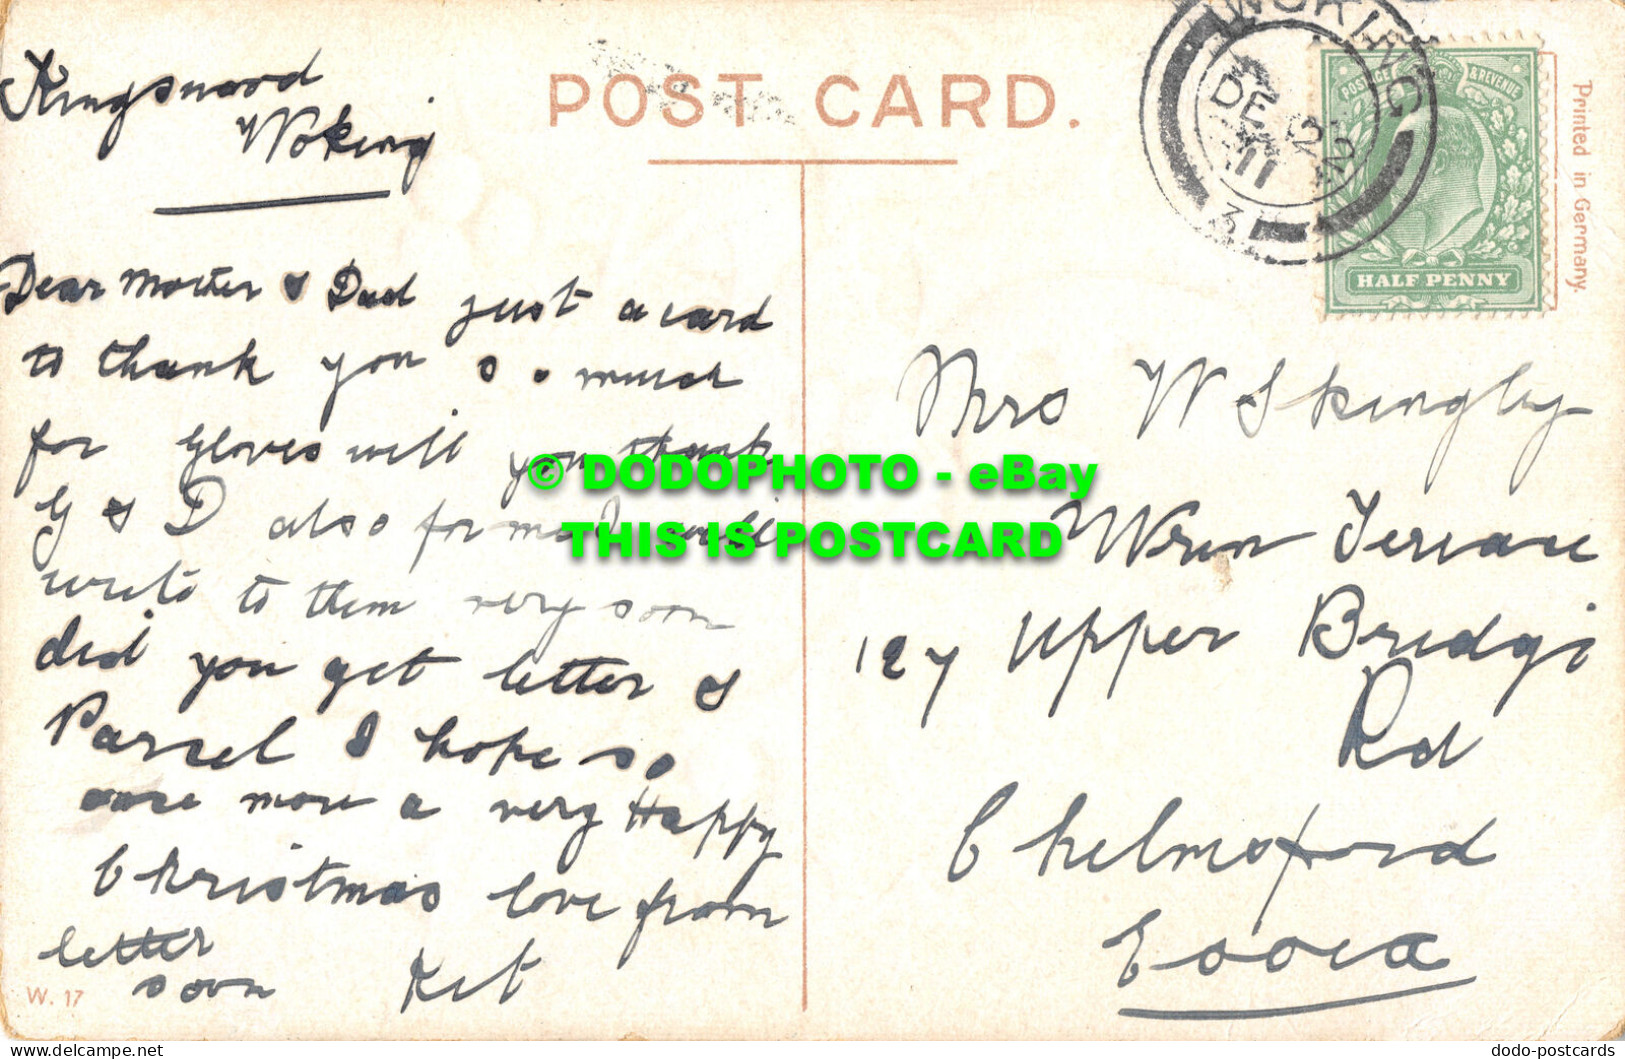 POST CARD.
Kingsnord
Woking
Dear Mother & Dad just a card
to thank you so much
for gloves will you thank
G & D also for me I will
write to them very soon
did you get letter &
Parcel I hope so
once more a very Happy
Christmas love from
letter
soon Kit
W. 17
WOKING
DE 22
11
3
POSTAGE & REVENUE
HALF PENNY
Printed in Germany.
Mrs W Skingley
Wren Terrace
127 Upper Bridge
Rd
Chelmsford
Essex
© DODOPHOTO - eBay
THIS IS POSTCARD
dodo-postcards